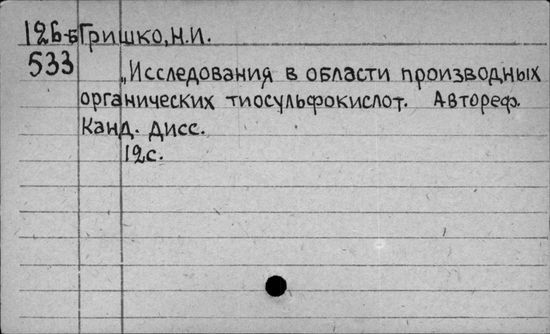 126-Б Гришко, Н.И.
533
„Исследования в области производных
органических тиосульфокислот. Автореф.
Канд. дисс.
12с.